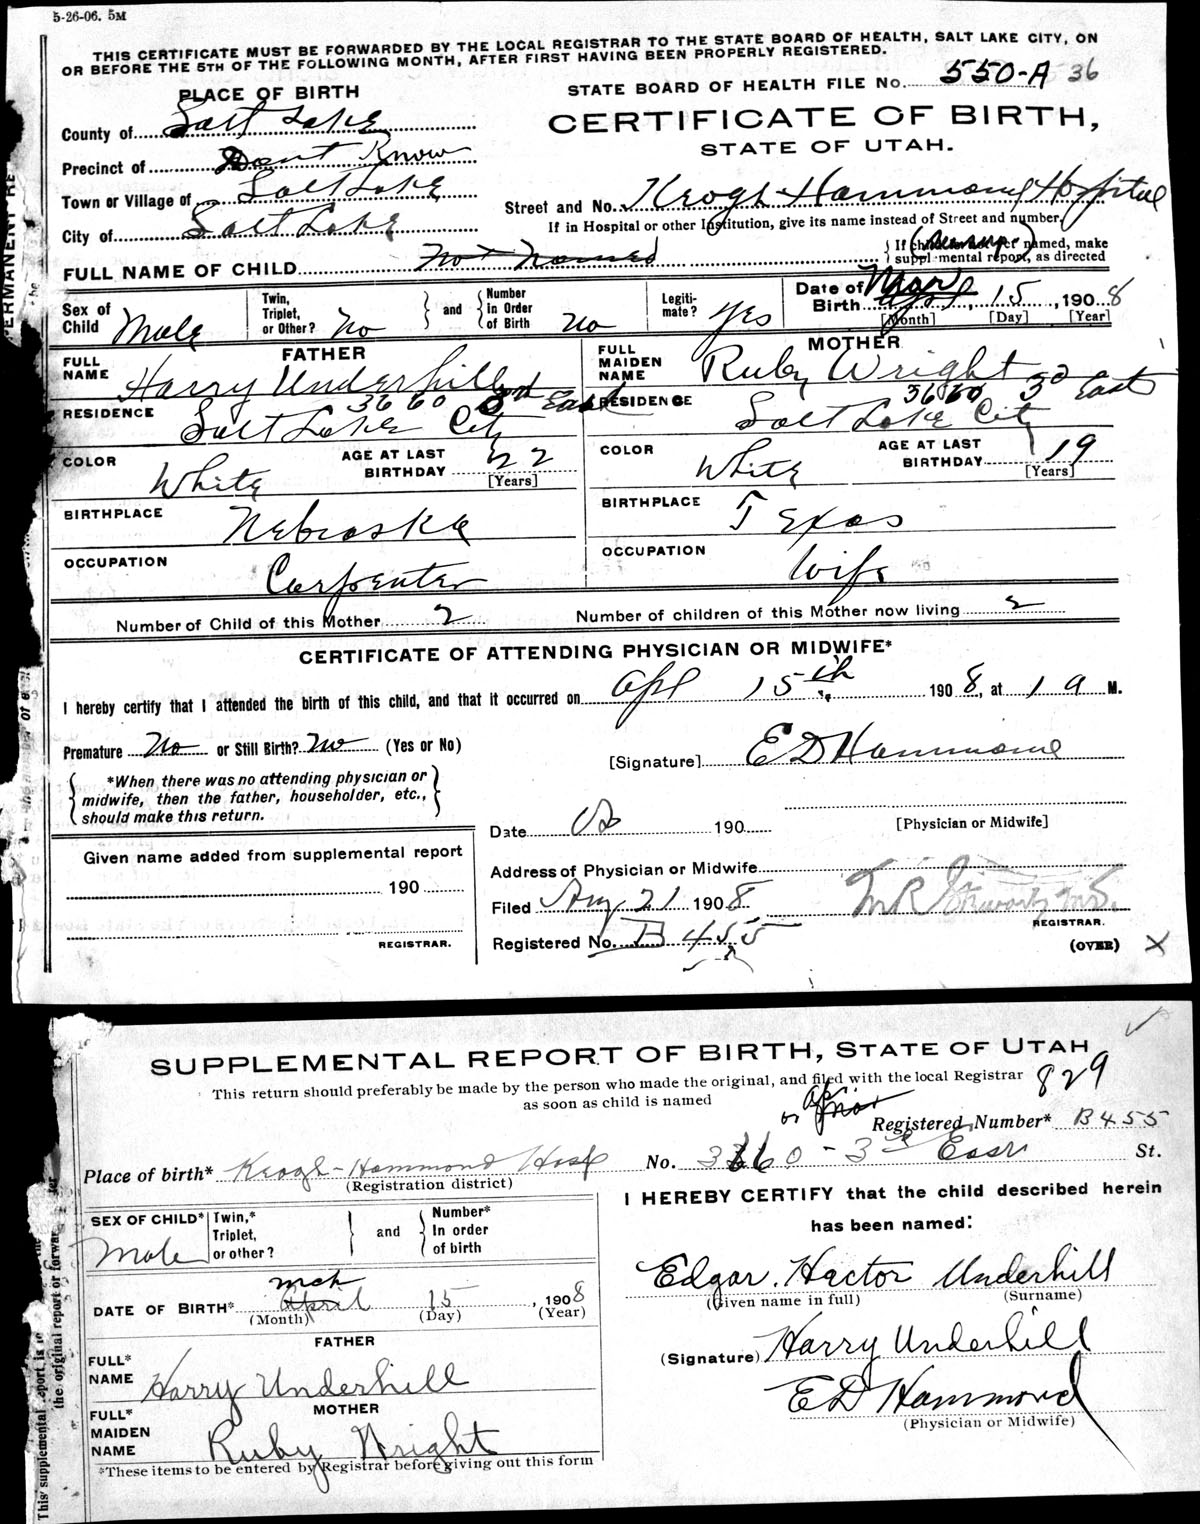 5-26-06. 5M
THIS CERTIFICATE MUST BE FORWARDED BY THE LOCAL REGISTRAR TO THE STATE BOARD OF HEALTH, SALT LAKE CITY, ON
OR BEFORE THE 5TH OF THE FOLLOWING MONTH, AFTER FIRST HAVING BEEN PROPERLY REGISTERED.
STATE BOARD OF HEALTH FILE No. 550-A 36
PLACE OF BIRTH
CERTIFICATE OF BIRTH,
STATE OF UTAH.
County of Salt Lake
Precinct of Dont Know
Town or Village of Salt Lake
City of Salt Lake
Street and No. Keogh-Hammond Hospital
If in Hospital or other Institution, give its name instead of Street and number.
FULL NAME OF CHILD Not Named
If child is not yet named, make
supplemental report, as directed
Sex of Child Male
Twin, Triplet, or Other? No
and
Number in Order of Birth No
Legitimate? Yes
Date of Birth Mar April 15, 1908
[Month] [Day] [Year]
FATHER
FULL NAME Harry Underhill
RESIDENCE 3660 3rd East
Salt Lake City
COLOR White
AGE AT LAST BIRTHDAY 22
[Years]
BIRTHPLACE Nebraska
OCCUPATION Carpenter
MOTHER
FULL MAIDEN NAME Ruby Wright
RESIDENCE 3660 3d East
Salt Lake City
COLOR White
AGE AT LAST BIRTHDAY 19
[Years]
BIRTHPLACE Texas
OCCUPATION Wife
Number of Child of this Mother 2 Number of children of this Mother now living 2
CERTIFICATE OF ATTENDING PHYSICIAN OR MIDWIFE*
I hereby certify that I attended the birth of this child, and that it occurred on Apl 15th, 1908, at 1 a M.
Premature No or Still Birth? No (Yes or No)
[Signature] E D Hammond
*When there was no attending physician or
midwife, then the father, householder, etc.,
should make this return.
Date 190
[Physician or Midwife]
Given name added from supplemental report
190
REGISTRAR.
Address of Physician or Midwife
Filed Aug 21 1908
REGISTRAR.
Registered No. B 455
(OVER) X
SUPPLEMENTAL REPORT OF BIRTH, STATE OF UTAH
This return should preferably be made by the person who made the original, and filed with the local Registrar
as soon as child is named
829
Registered Number* B455
Place of birth* Keogh-Hammond Hosp
(Registration district)
No. 3660 - 3rd East St.
SEX OF CHILD* Male
Twin,* Triplet, or other?
and
Number* In order of birth
DATE OF BIRTH* mch April 15, 1908
(Month) (Day) (Year)
FATHER
FULL* NAME Harry Underhill
MOTHER
FULL* MAIDEN NAME Ruby Wright
*These items to be entered by Registrar before giving out this form
I HEREBY CERTIFY that the child described herein
has been named:
Edgar Hector Underhill
(Given name in full) (Surname)
(Signature) Harry Underhill
E D Hammond
(Physician or Midwife)